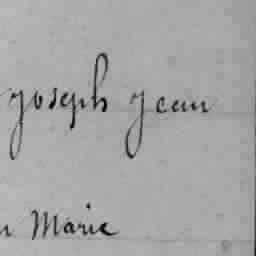 Joseph Jean
Marie